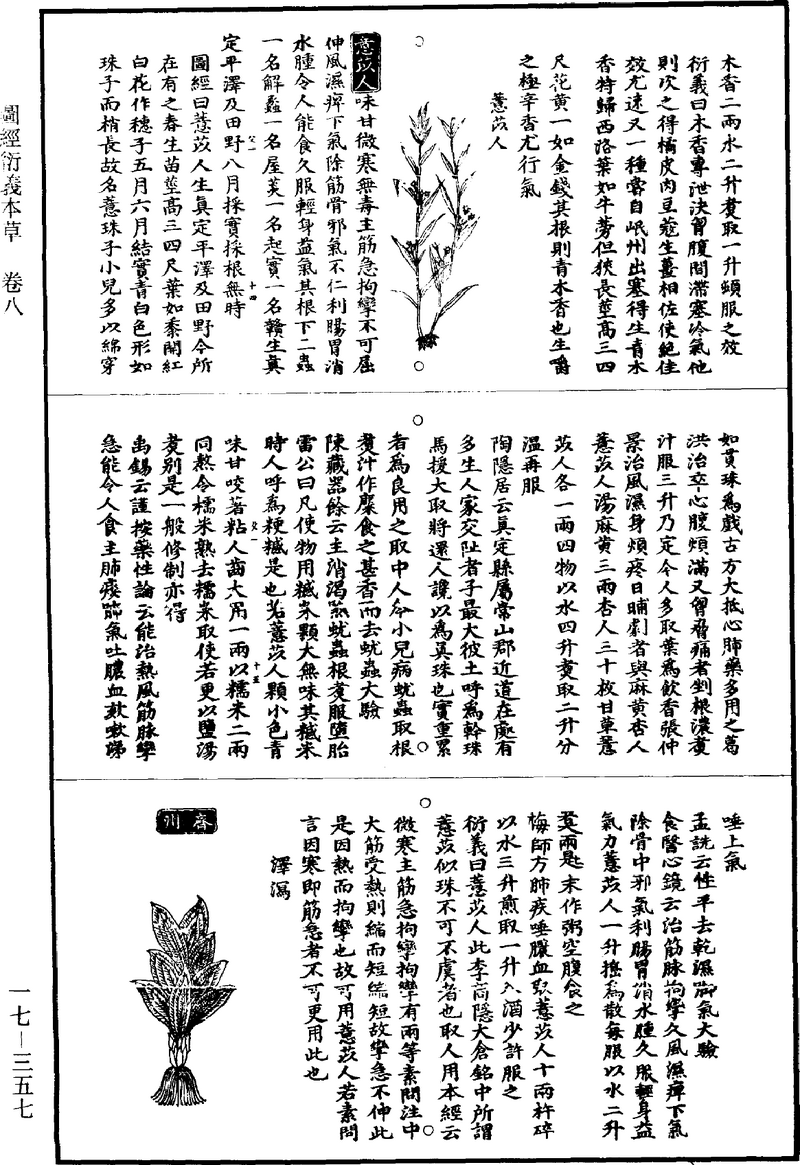 圖經衍義本草　卷八
木香二兩水二升煑取一升頓服之效
衍義曰木香專泄決胷腹間滯塞冷氣他
則次之得橘皮肉豆蔻生薑相佐使絕佳
效尤速又一種嘗自岷州出塞得生青木
香持歸西洛葉如牛蒡但狹長莖高三四
尺花黃一如金錢其根則青木香也生嚼
之極辛香尤行氣
薏苡人
薏苡人味甘微寒無毒主筋急拘攣不可屈
伸風濕痺下氣除筋骨邪氣不仁利腸胃消
水腫令人能食久服輕身益氣其根下三蟲
一名解蠡一名屋菼一名起實一名贛生真
定平澤及田野八月採實採根無時
圖經曰薏苡人生真定平澤及田野今所
在有之春生苗莖高三四尺葉如黍開紅
白花作穗子五月六月結實青白色形如
珠子而稍長故名薏珠子小兒多以綿穿
如貫珠爲戲古方大抵心肺藥多用之葛
洪治卒心腹煩滿又胷脅痛者剉根濃煑
汁服三升乃定今人多取葉爲飲香張仲
景治風濕身煩疼日晡劇者與麻黃杏人
薏苡人湯麻黃三兩杏人三十枚甘草薏
苡人各一兩四物以水四升煑取二升分
溫再服
陶隱居云真定縣屬常山郡近道在處有
多生人家交阯者子最大彼土呼爲簳珠
馬援大取將還人讒以爲真珠也實重累
者爲良用之取中人今小兒病蚘蟲取根
煑汁作糜食之甚香而去蚘蟲大驗
陳藏器餘云主消渴煞蚘蟲根煑服墮胎
雷公曰凡使勿用𥻨米顆大無味其𥻨米
時人呼爲粳𥻨是也若薏苡人顆小色青
味甘咬著粘人齒夫用一兩以糯米二兩
同熬令糯米熟去糯米取使若更以鹽湯
煑別是一般修制亦得
禹錫云謹按藥性論云能治熱風筋脉攣
急能令人食主肺痿肺氣吐膿血欬嗽涕
唾上氣
孟詵云性平去乾濕脚氣大驗
食醫心鏡云治筋脉拘攣久風濕痺下氣
除骨中邪氣利腸胃消水腫久服輕身益
氣力薏苡人一升擣爲散每服以水二升
煑兩匙末作粥空腹食之
梅師方肺疾唾膿血取薏苡人十兩杵碎
以水三升煎取一升入酒少許服之
衍義曰薏苡人此李商隱太倉銘中所謂
薏苡似珠不可不虞者也取人用本經云
微寒主筋急拘攣拘攣有兩等素問注中
大筋受熱則縮而短縮短故攣急不伸此
是因熱而拘攣也故可用薏苡人若素問
言因寒即筋急者不可更用此也
澤瀉
齊州
一七－三五七